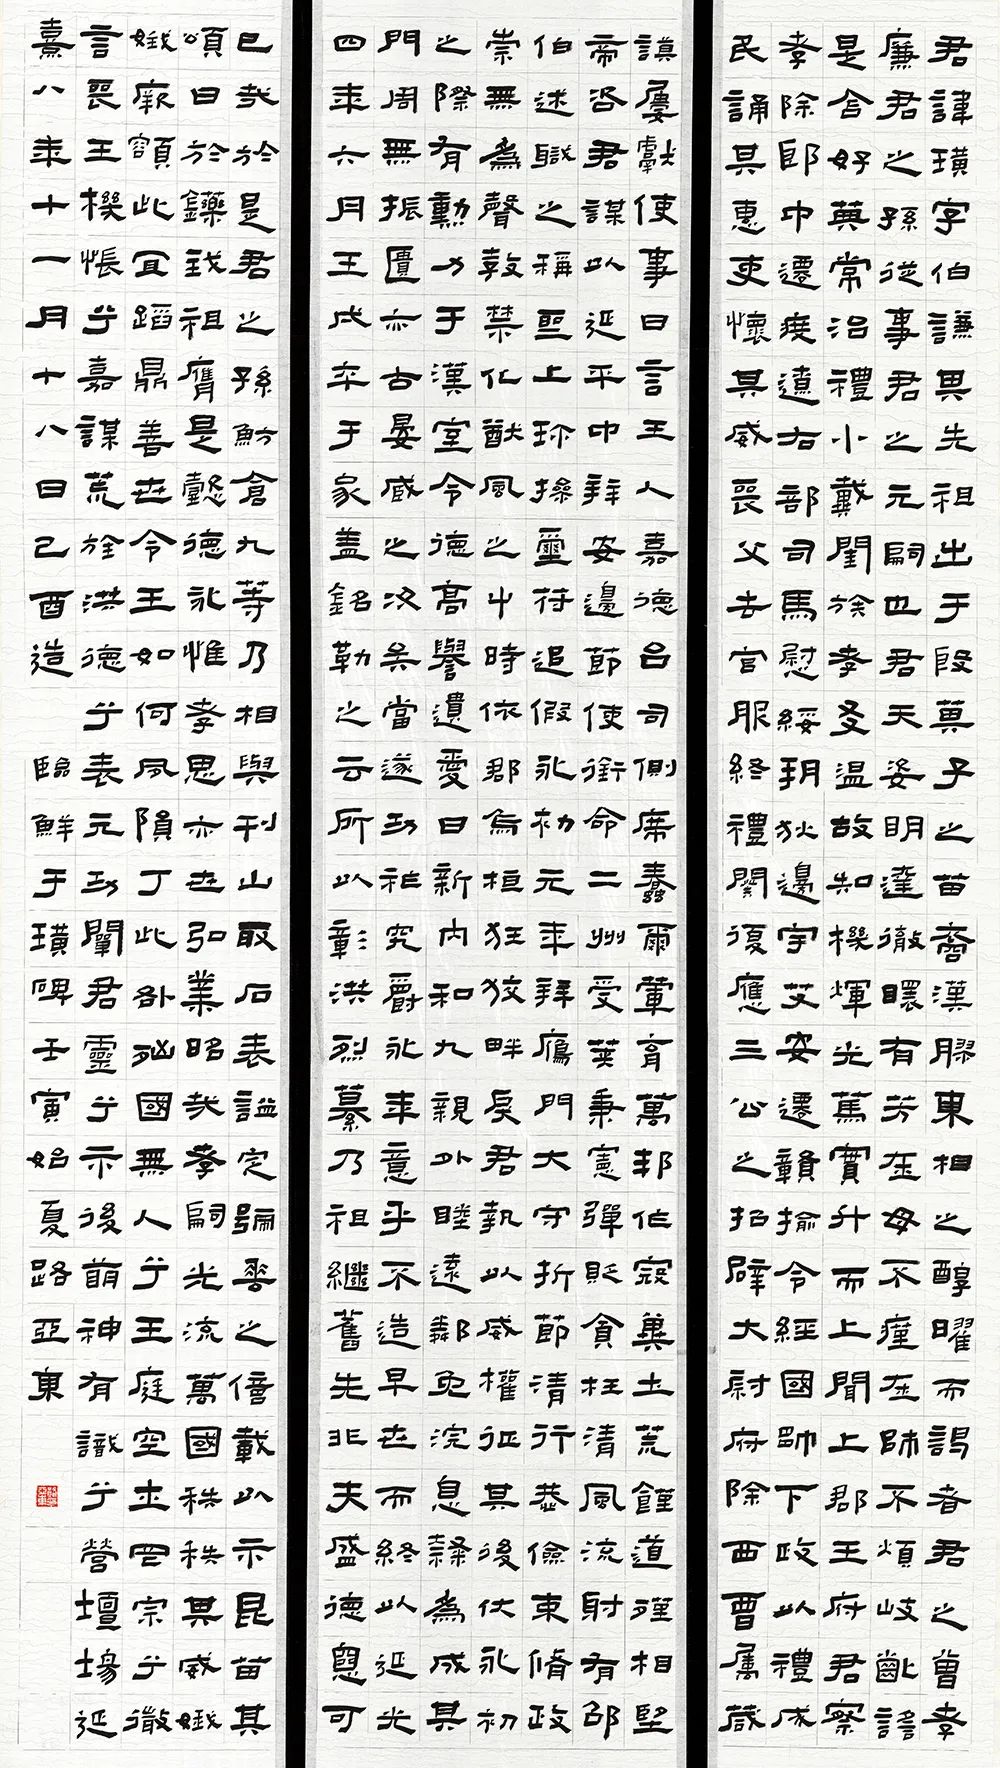 君諱璜字伯謙其先祖出于殷箕子之苗裔漢膠東相之醇曜而謁者君之曾孝
廉君之孫從事君之元嗣也君天姿明達徹曠有芳在母不瘇在師不煩岐齠謠
是含好典常治禮小戴閨族孝友溫故知機煇光篤實升而上聞上郡王府君察
孝除郎中遷度遼右部司馬慰綏朔狄邊宇艾安遷贛揄令經國帥下政以禮成
民誦其惠吏懷其威喪父去官服終禮闋復應三公之招辟大尉府除西曹屬歲
謨屢獻使事日言王人嘉德呂司側席蠢爾葷育萬邦作寇冀土荒饉道殣相望
帝咨君謀以延平中拜安邊節使銜命二州受莢秉憲彈貶貪枉清風流射有邵
伯述職之稱聖上珍操璽符追假永初元年拜鴈門大守折節清行恭儉束脩政
崇無為聲敦禁化猷風之中時依郡烏桓狂狡畔戾君執以威權征其後伏永初
之際有勳力于漢室令德高譽遺愛日新內和九親外睦遠鄰免浣息隸為成其
門周無振匱亦古晏臧之次矣當遂功祚究爵永年意乎不造早世而終以延光
四年六月壬戌卒于家蓋銘勒之云所以彰洪烈纂乃祖繼舊先非夫盛德惡可
已哉於是君之孫魴倉九等乃相與刊山取石表謚定號垂之億載以示昆苗其
頌曰於鑠我祖膺是懿德永惟孝思亦世弘業昭哉孝嗣光流萬國秩秩其威娥
娥厥額此宜蹈鼎善世令王如何夙隕丁此咎凶國無人兮王庭空士罔宗兮微
言喪王機悵兮嘉謀荒旌洪德兮表元功闡君靈兮示後萌神有識兮營壇場延
熹八年十一月十八日己酉造 臨鮮于璜碑壬寅始夏路亞東